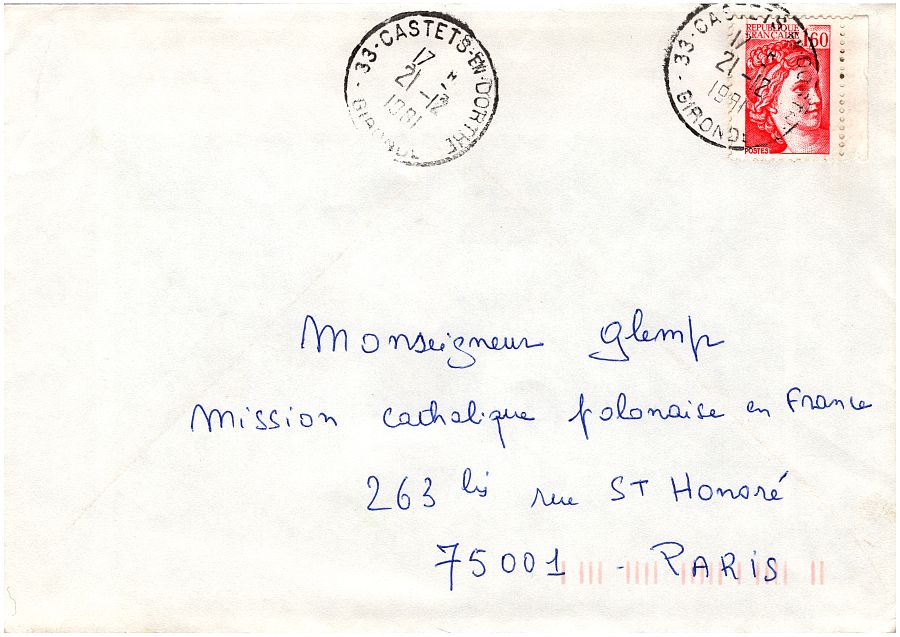 33-CASTETS-EN-DORTHE
17 H
21-12
1981
GIRONDE
33-CASTETS-EN-DORTHE
17 H
21-12
1981
GIRONDE
REPUBLIQUE
FRANCAISE
1,60
POSTES
Monseigneur Glemp
Mission catholique polonaise en France
263 bis rue ST Honoré
75001 - PARIS